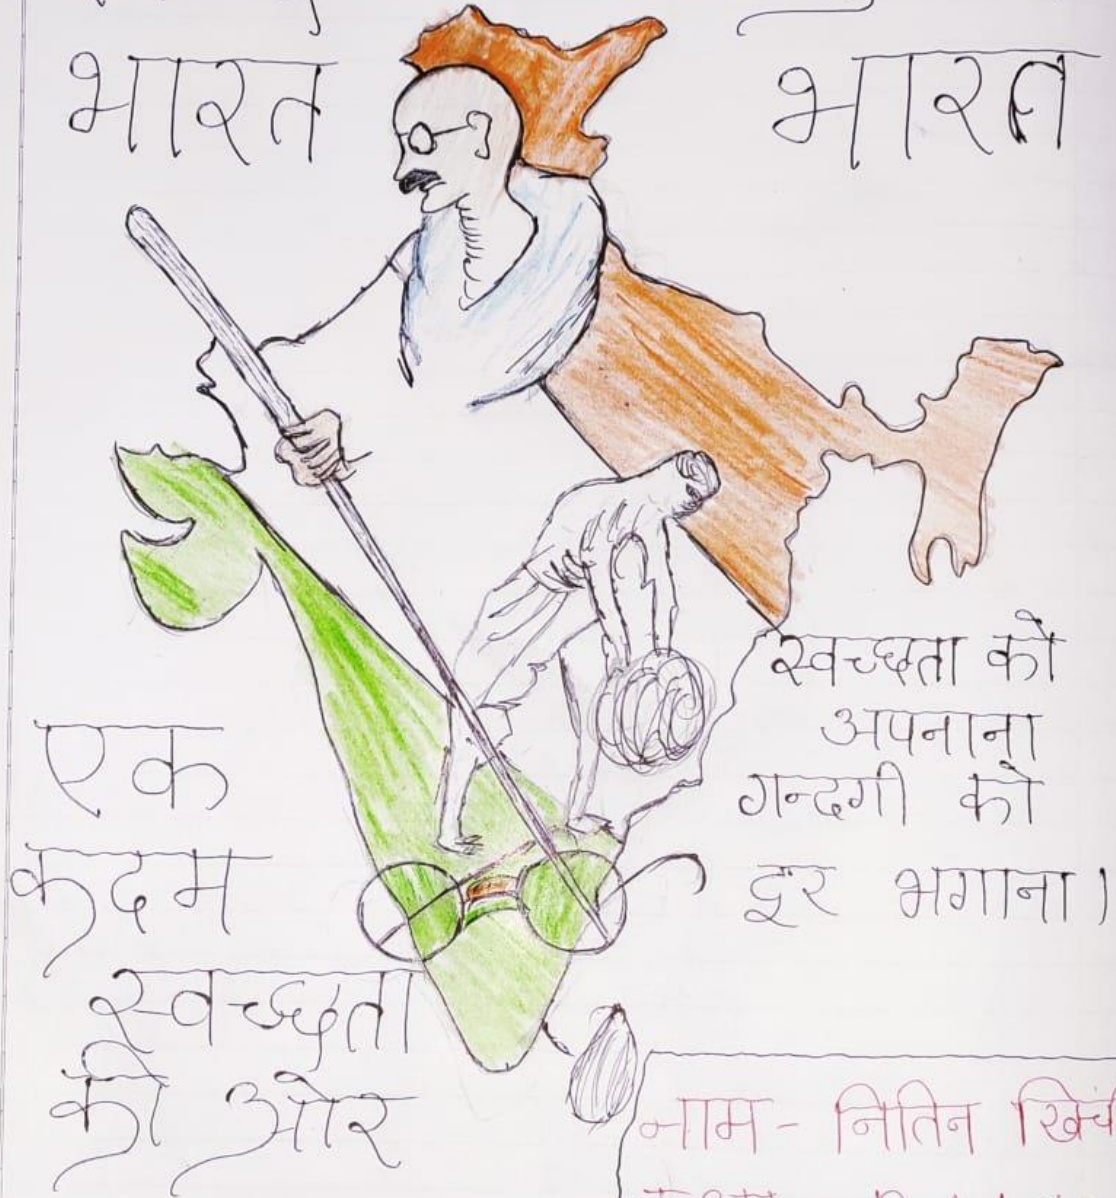 भारत भारत
स्वच्छता को
अपनाना
गन्दगी को
दूर भगाना।
एक
कदम
स्वच्छता
की ओर
नाम - नितिन